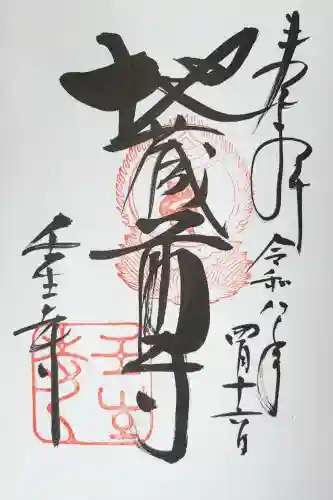 奉拝
令和八年
四月十六日
地蔵尊
壬生寺